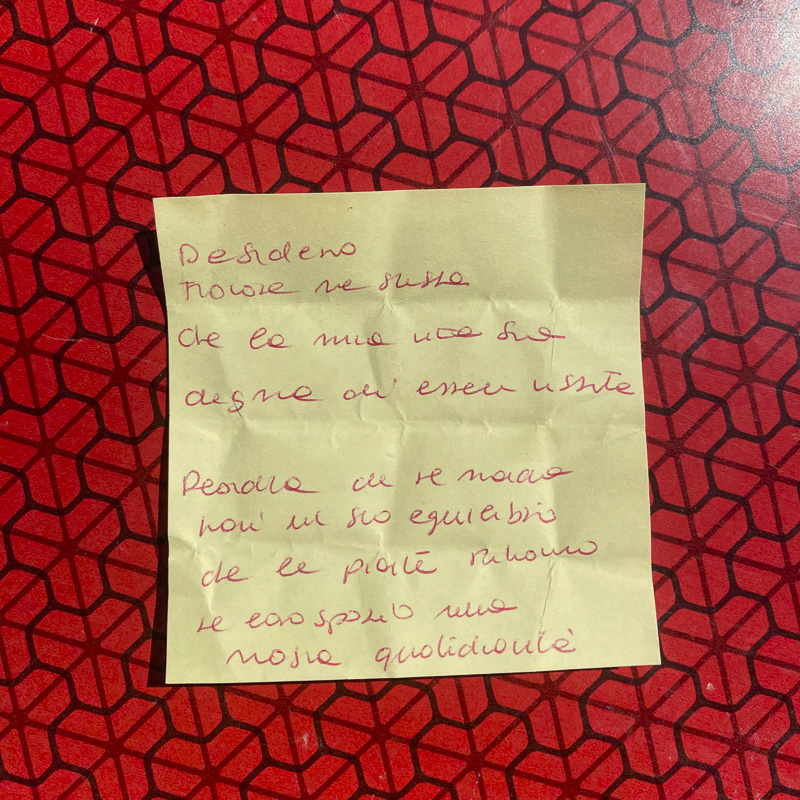 Desidero
trovare me stessa
che la mia vita sia
degna di esser vissuta
Desidera che il mondo
trovi il suo equilibrio
che le piante trovino
il loro spazio nella
nostra quotidianità